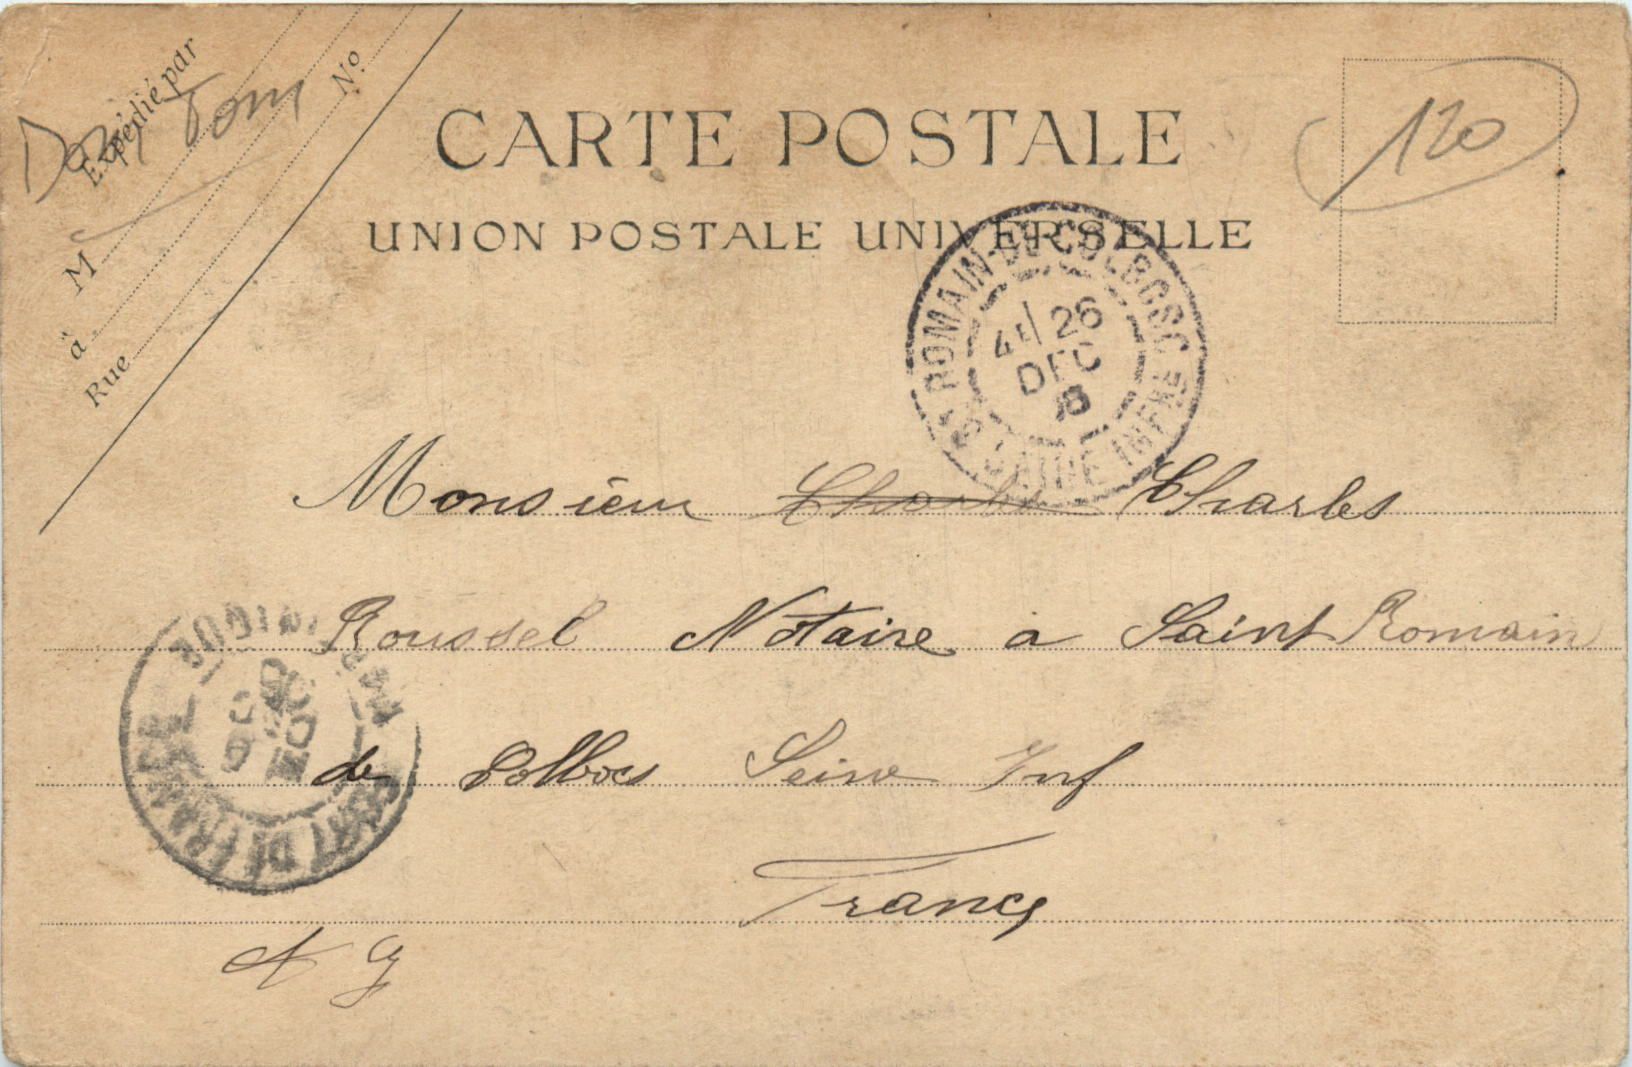 Expédié par
M
à
Rue
No.
Dom Tom
CARTE POSTALE
UNION POSTALE UNIVERSELLE
120
ST ROMAIN-DE-COLBOSC
SEINE INFRE
4E/26
DEC
Monsieur Charles Charles
Roussel Notaire a Saint Romain
de Colbocs Seine Inf
France